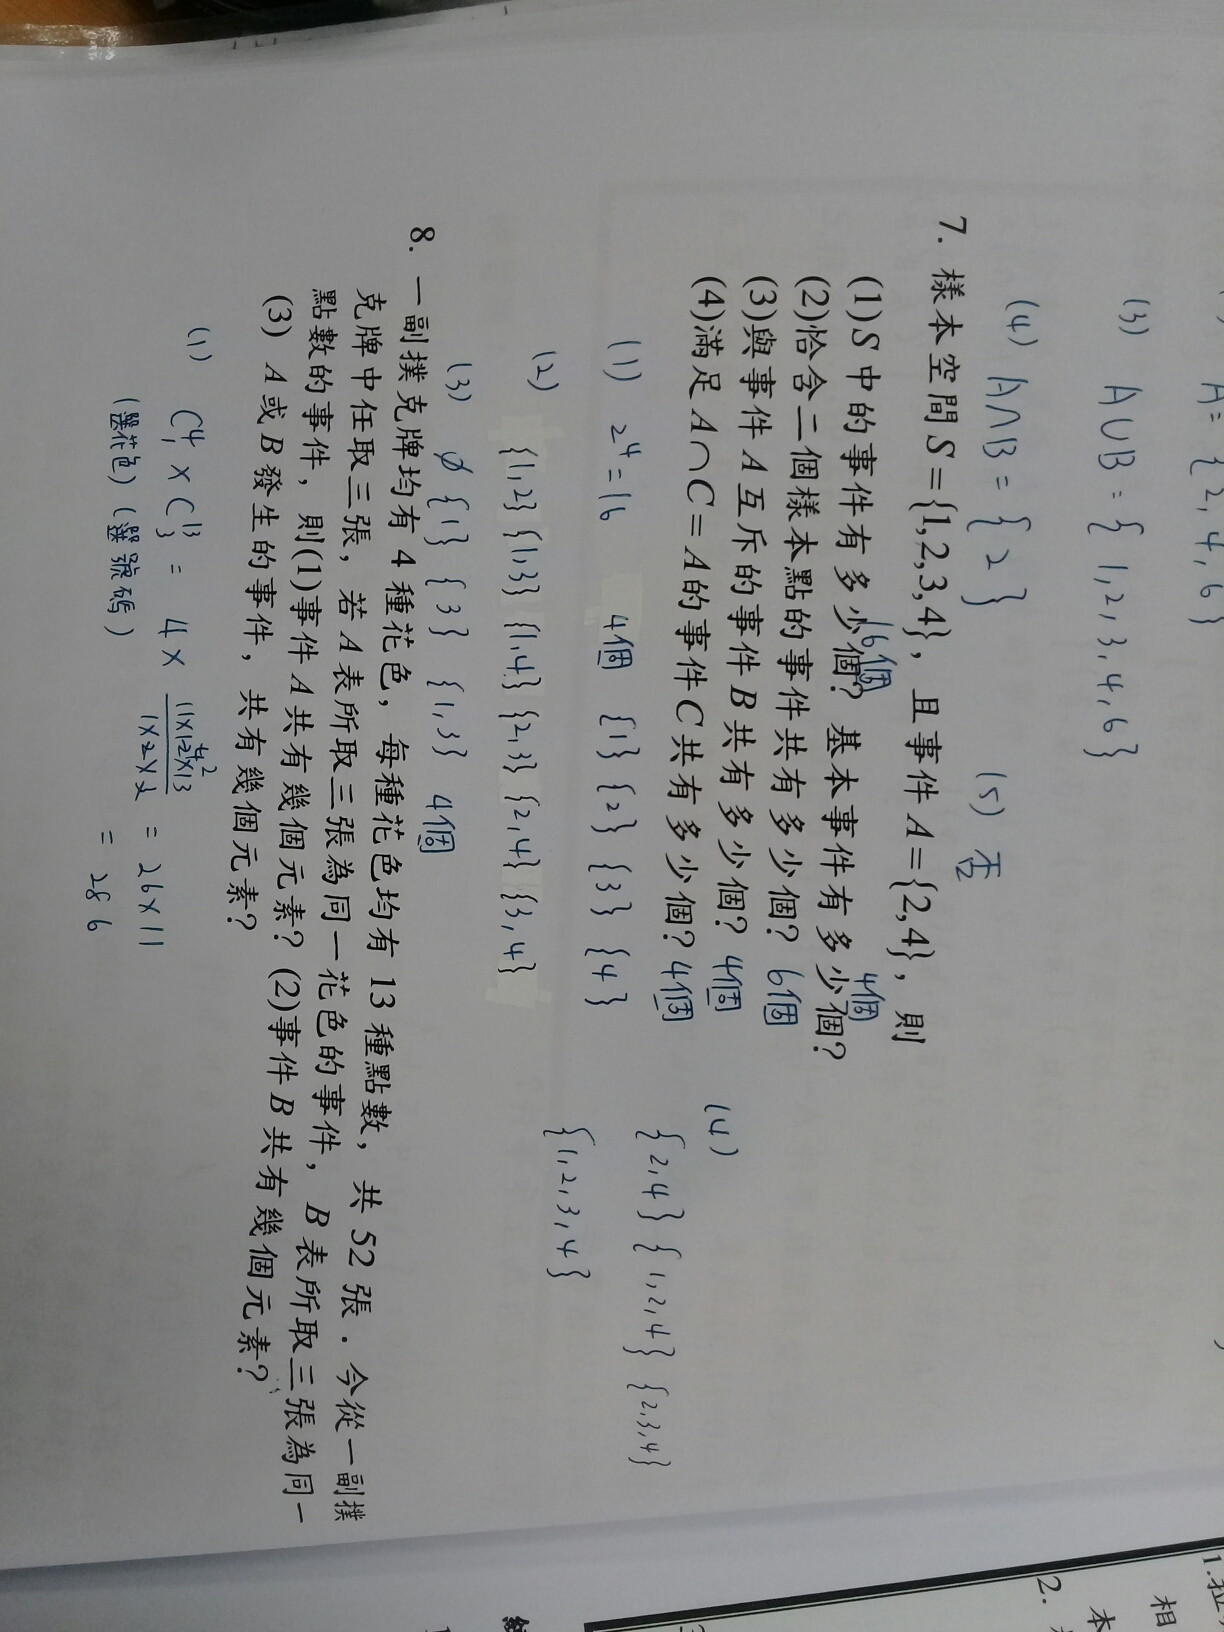 A = { 2, 4, 6 }
(3) A∪B = { 1, 2, 3, 4, 6 }
(4) A∩B = { 2 } (5) 否
7. 樣本空間 S={1,2,3,4}，且事件 A={2,4}，則
(1)S 中的事件有多少個？16個 基本事件有多少個？4個
(2)恰含二個樣本點的事件共有多少個？6個
(3)與事件 A 互斥的事件 B 共有多少個？4個
(4)滿足 A∩C=A 的事件 C 共有多少個？4個
(1) 2⁴=16 4個 {1} {2} {3} {4}
(2) {1,2} {1,3} {1,4} {2,3} {2,4} {3,4}
(3) ∅ {1} {3} {1,3} 4個
(4)
{2,4} {1,2,4} {2,3,4}
{1,2,3,4}
8. 一副撲克牌均有 4 種花色，每種花色均有 13 種點數，共 52 張．今從一副撲
克牌中任取三張，若 A 表所取三張為同一花色的事件，B 表所取三張為同一
點數的事件，則(1)事件 A 共有幾個元素？(2)事件 B 共有幾個元素？
(3) A 或 B 發生的事件，共有幾個元素？
(1) C⁴₁ × C¹³₃ = 4 × (11×12×13)/(1×2×3) = 26×11
(選花色)(選號碼) = 286
2.
相
本